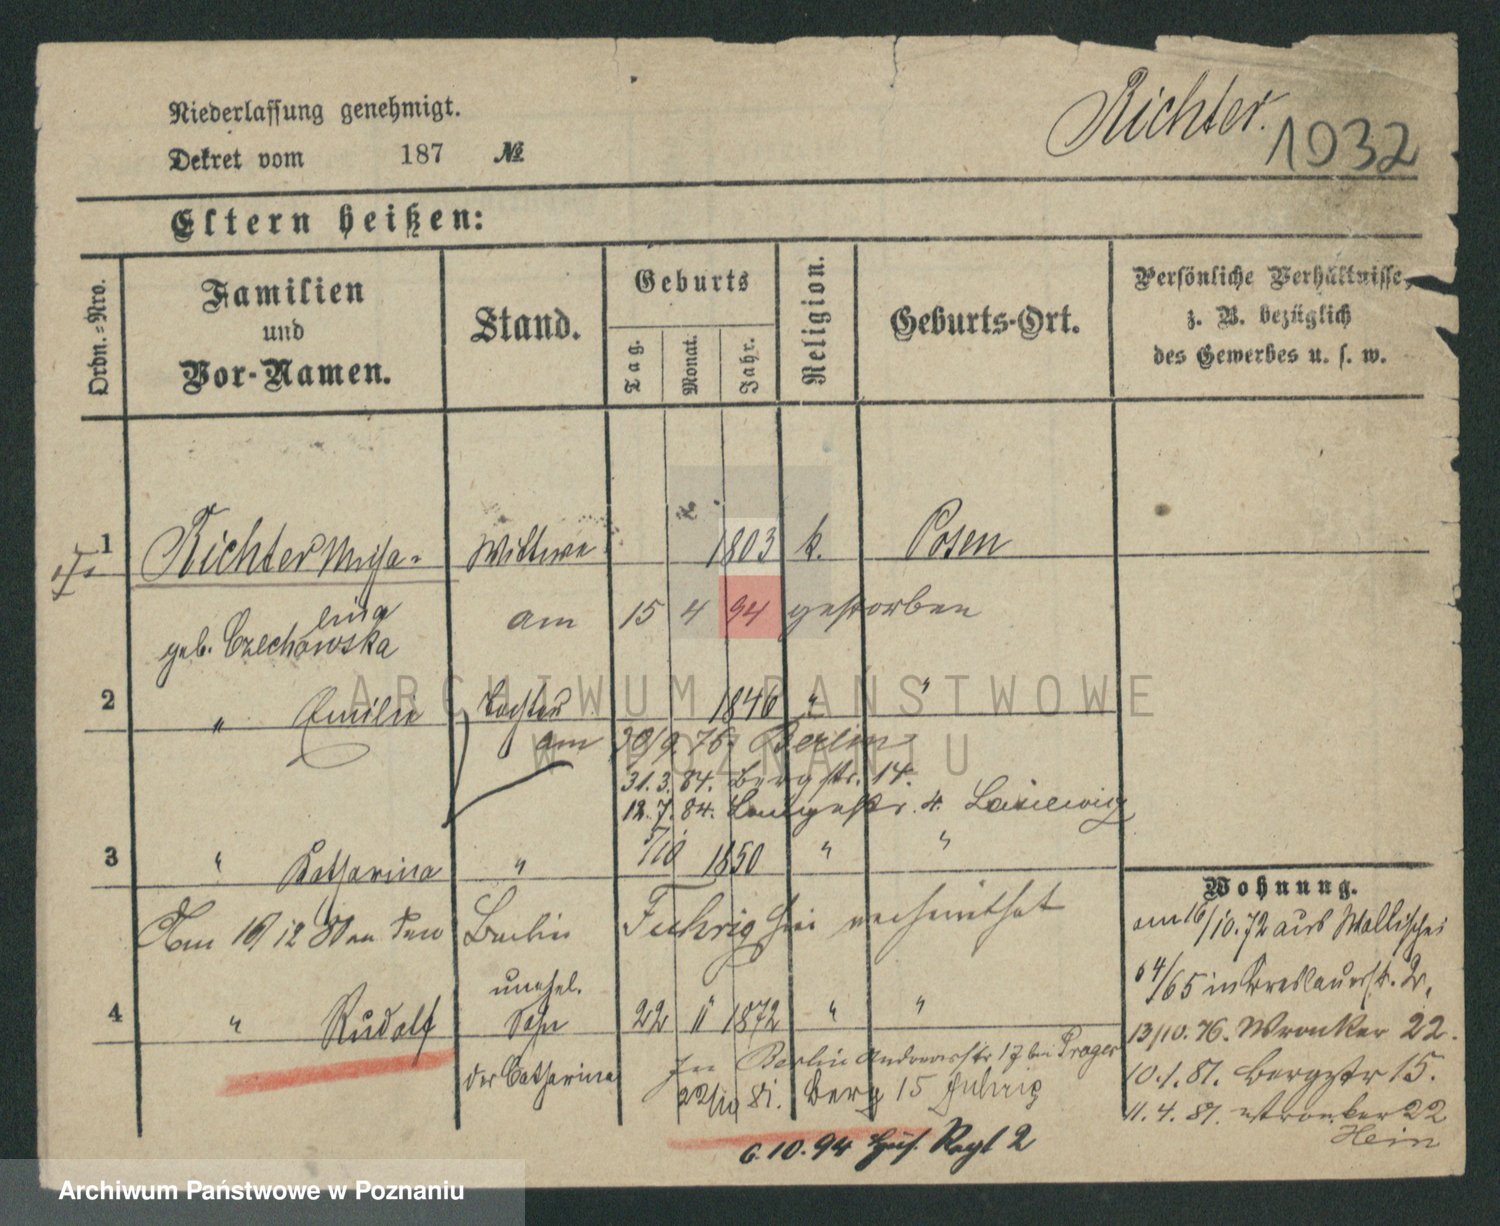 Niederlassung genehmigt.
Richter.
1932
Dekret vom 187 №
Eltern heißen:
Ordn.=Nro.
Familien
und
Vor-Namen.
Stand.
Geburts
Tag.
Monat.
Jahr.
Religion.
Geburts-Ort.
Persönliche Verhältnisse,
z. B. bezüglich
des Gewerbes u. s. w.
1 Richter Micha= Wittwe 1803 k. Posen
lina am 15 4 94 gestorben
geb. Czechowska
2 " Emilie Tochter 1846 " "
am 30/9 76. Berlin
31.3.84. Bergstr. 14.
12.7.84. Langestr. 4.
3 " Catharina " 7/10 1850 " "
Am 16/12 80 in Berlin Fuhrig verheirathet
4 " Rudolf unehel. Sohn 22 11 1872 " "
der Catharina
Berlin Andreasstr 17 bei Prager
22/10 81. Berg 15 Fuhrig
6.10.94 Hus. Regt 2
Wohnung.
am 16/10.72 aus Wallischei
64/65 in Breslauerstr.
13/10.76. Wronker 22.
10.1.81. Bergstr 15.
11.4.81. Wronker 22
Hein
ARCHIWUM PAŃSTWOWE
W POZNANIU
Archiwum Państwowe w Poznaniu